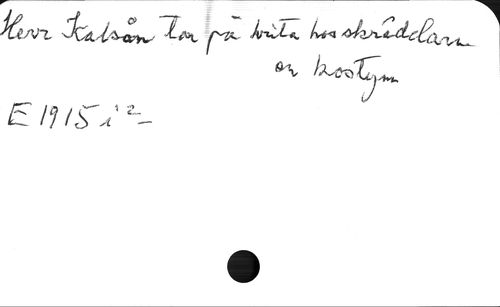 Herr Kalsån tar på krita hos skräddarn
en kostym
E 1915 i 2 –